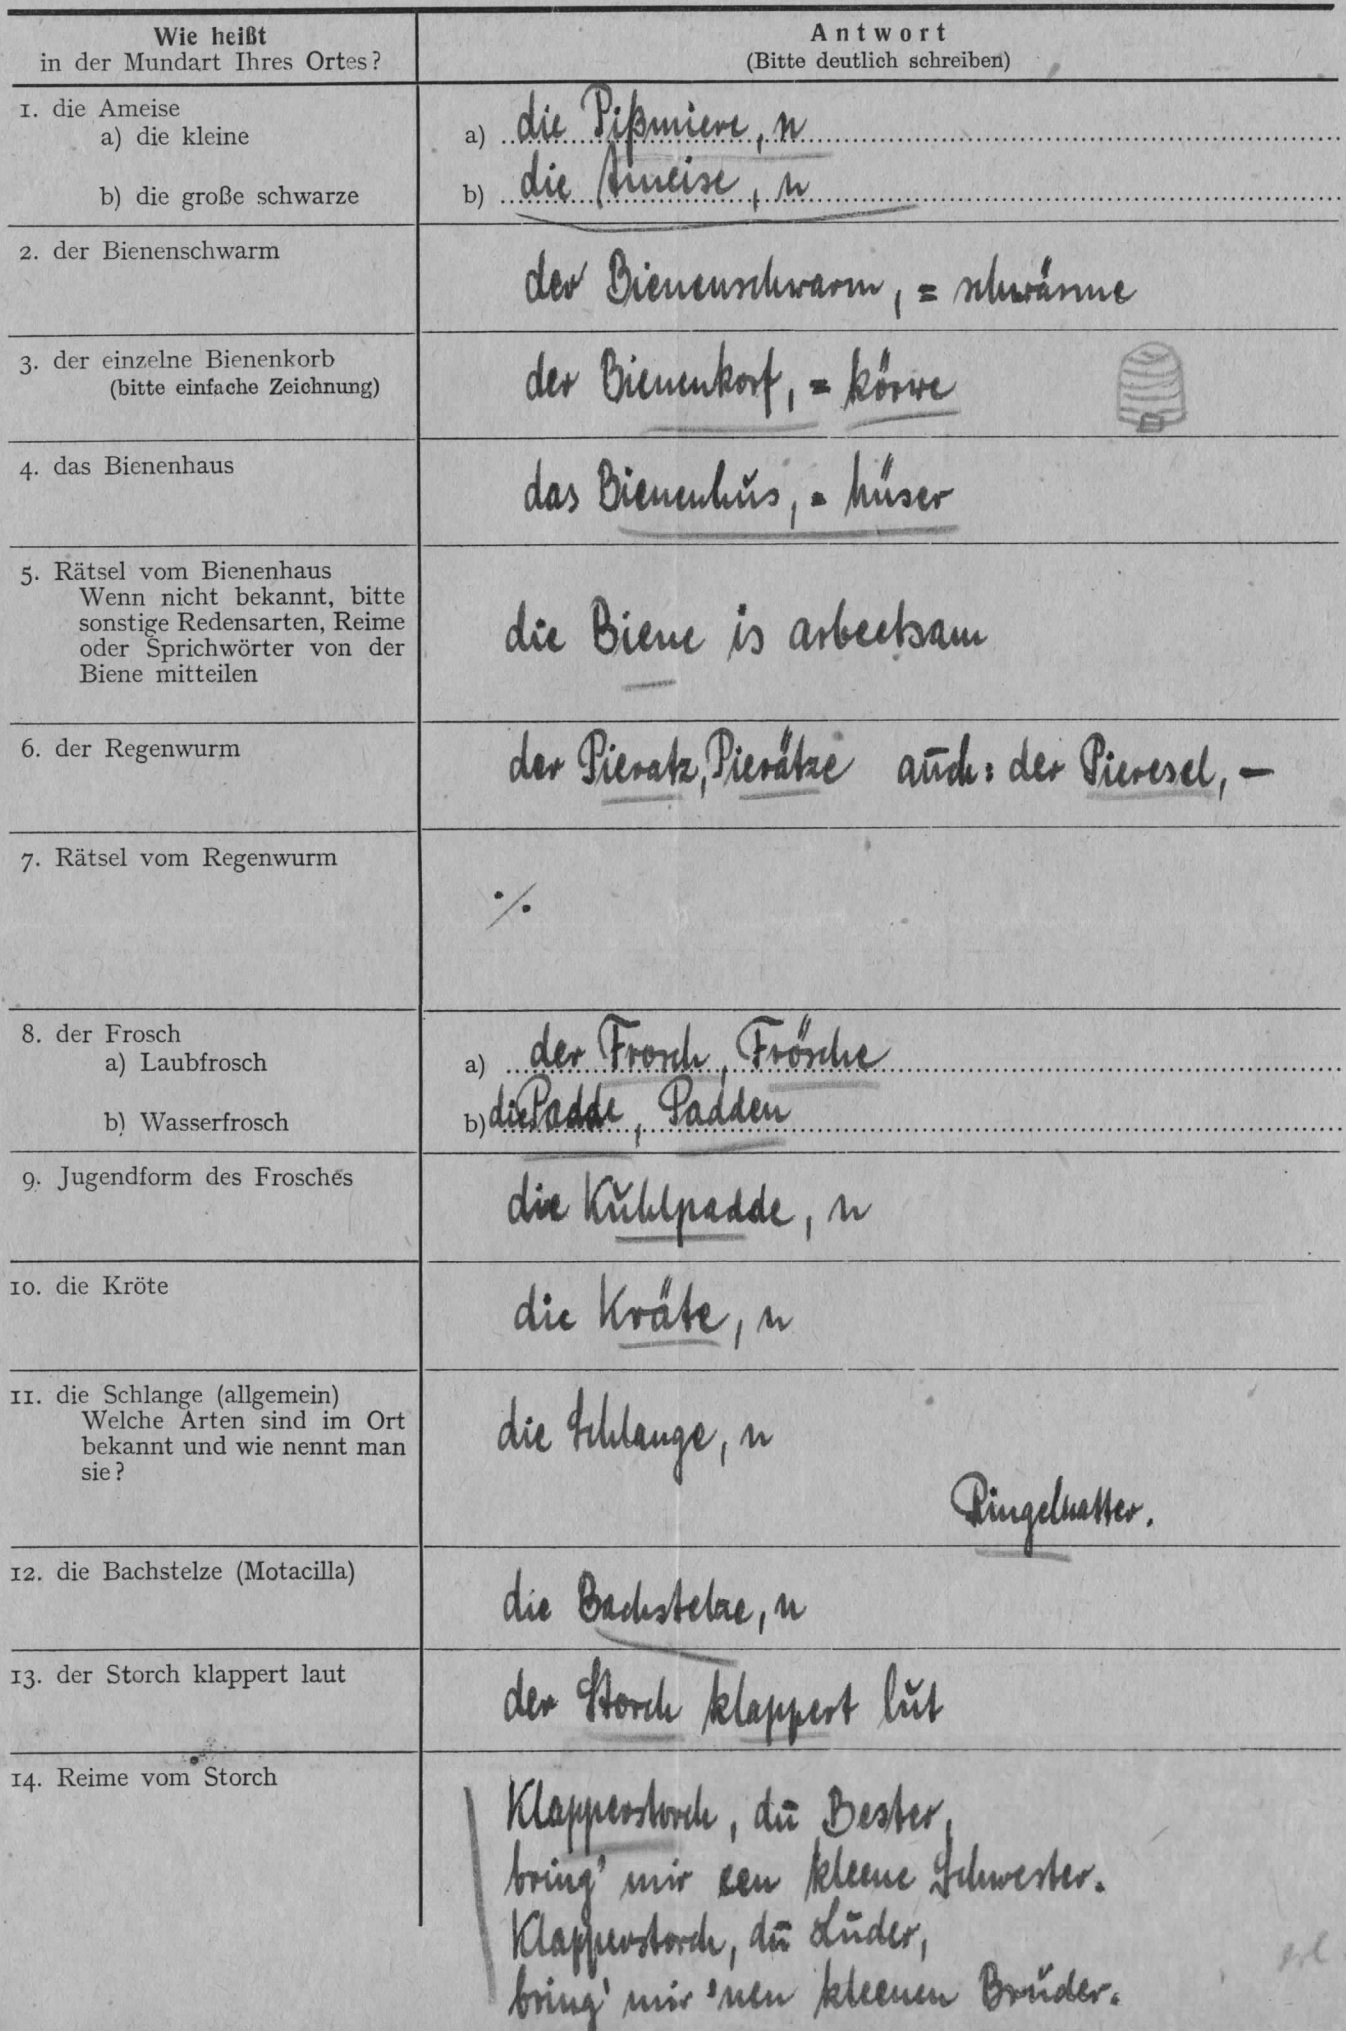 Wie heißt
in der Mundart Ihres Ortes?
Antwort
(Bitte deutlich schreiben)
1. die Ameise
a) die kleine
a) die Pißmiere, n
b) die große schwarze
b) die Ameise, n
2. der Bienenschwarm
der Bienenschwarm, = schwärme
3. der einzelne Bienenkorb
(bitte einfache Zeichnung)
der Bienenkorf, = körwe
4. das Bienenhaus
das Bienenhus, = hüser
5. Rätsel vom Bienenhaus
Wenn nicht bekannt, bitte
sonstige Redensarten, Reime
oder Sprichwörter von der
Biene mitteilen
die Biene is arbeetsam
6. der Regenwurm
der Pieratz, Pierätze auch: der Pieresel, —
7. Rätsel vom Regenwurm
./.
8. der Frosch
a) Laubfrosch
a) der Frosch, Frösche
b) Wasserfrosch
b) die Padde, Padden
9. Jugendform des Frosches
die Kuhlpadde, n
10. die Kröte
die Kräte, n
11. die Schlange (allgemein)
Welche Arten sind im Ort
bekannt und wie nennt man
sie?
die Schlange, n
Ringelnatter.
12. die Bachstelze (Motacilla)
die Bachstelze, n
13. der Storch klappert laut
der Storch klappert lut
14. Reime vom Storch
Klapperstorch, du Bester,
bring' mir een kleene Schwester.
Klapperstorch, du Luder,
bring' mir 'nen kleenen Bruder.